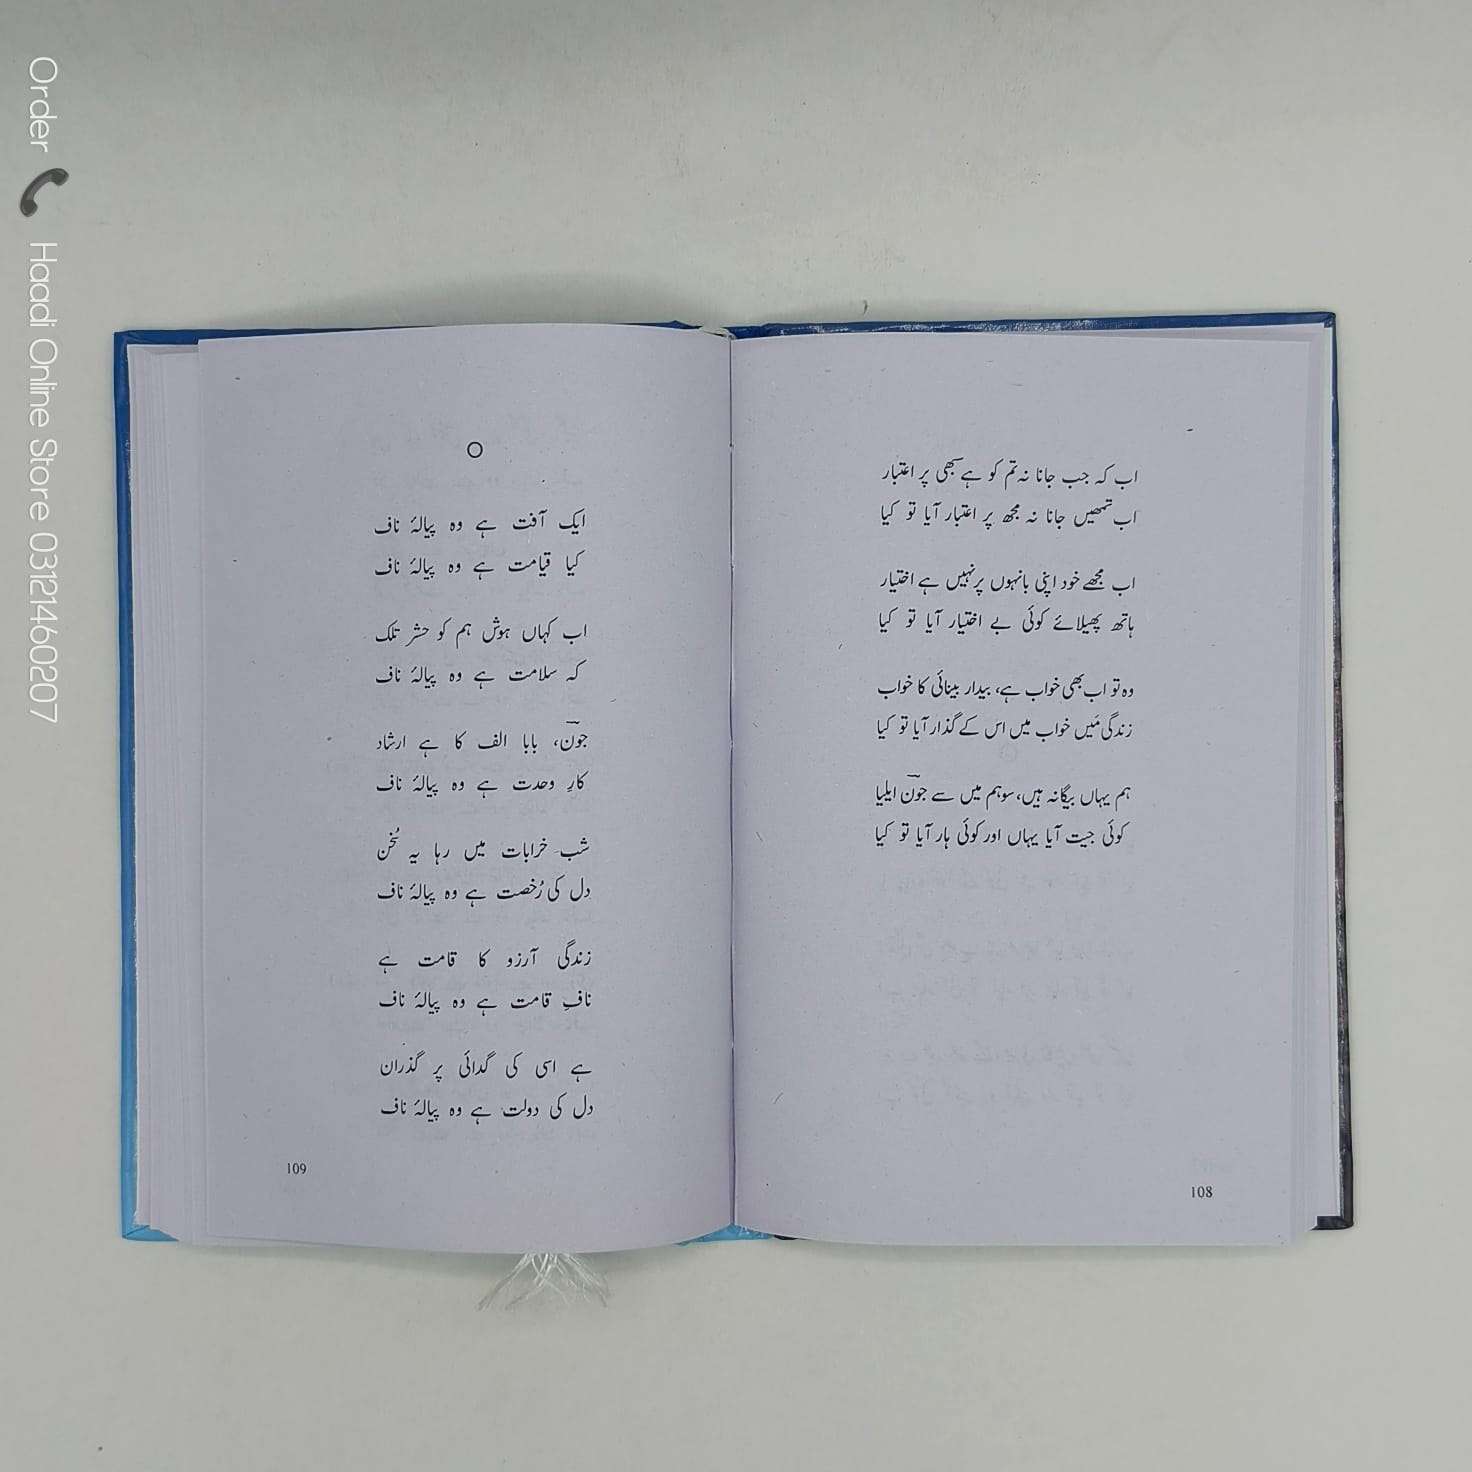 اب کہ جب جانا نہ تم کو ہے سبھی پر اعتبار
اب تمھیں جانا نہ مجھ پر اعتبار آیا تو کیا
اب مجھے خود اپنی بانہوں پر نہیں ہے اختیار
ہاتھ پھیلائے کوئی بے اختیار آیا تو کیا
وہ تو اب بھی خواب ہے، بیدار بینائی کا خواب
زندگی مَیں خواب میں اس کے گذار آیا تو کیا
ہم یہاں بیگانہ ہیں، سو ہم میں سے جونؔ ایلیا
کوئی جیت آیا یہاں اور کوئی ہار آیا تو کیا
108
ایک آفت ہے وہ پیالۂ ناف
کیا قیامت ہے وہ پیالۂ ناف
اب کہاں ہوش ہم کو حشر تلک
کہ سلامت ہے وہ پیالۂ ناف
جونؔ، بابا الف کا ہے ارشاد
کارِ وحدت ہے وہ پیالۂ ناف
شب خرابات میں رہا یہ سُخن
دل کی رُخصت ہے وہ پیالۂ ناف
زندگی آرزو کا قامت ہے
نافِ قامت ہے وہ پیالۂ ناف
ہے اسی کی گدائی پر گذران
دل کی دولت ہے وہ پیالۂ ناف
109
Order Haadi Online Store 03121460207